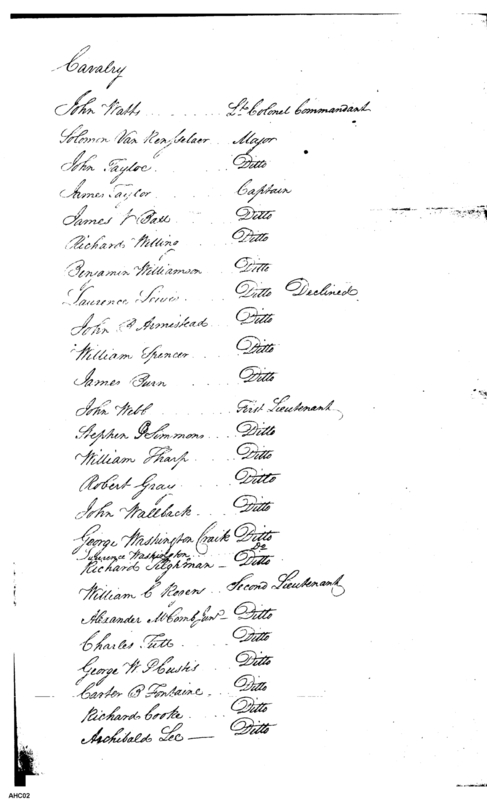 Cavalry
John Watts Lt. Colonel Commandant
Solomon Van Rensselaer Major
John Tayloe Ditto
James Taylor Captain
James V Ball Ditto
Richard Willing Ditto
Benjamin Williamson Ditto
Laurence Ditto Declined
John B Armistead Ditto
William Spencer Ditto
James Burn Ditto
John Webb First Lieutenant
Stephen G Simmons Ditto
William Tharp Ditto
Robert Gray Ditto
John Wallback Ditto
George Washington Craik Ditto
Laurence Washington Do
Richard Tilghman Ditto
William C Rogers Second Lieutenant
Alexander McComb Junr Ditto
Charles Tutt Ditto
George W P Custis Ditto
Carter B Fontaine Ditto
Richard Cooke Ditto
Archibald Lee Ditto
AHC02